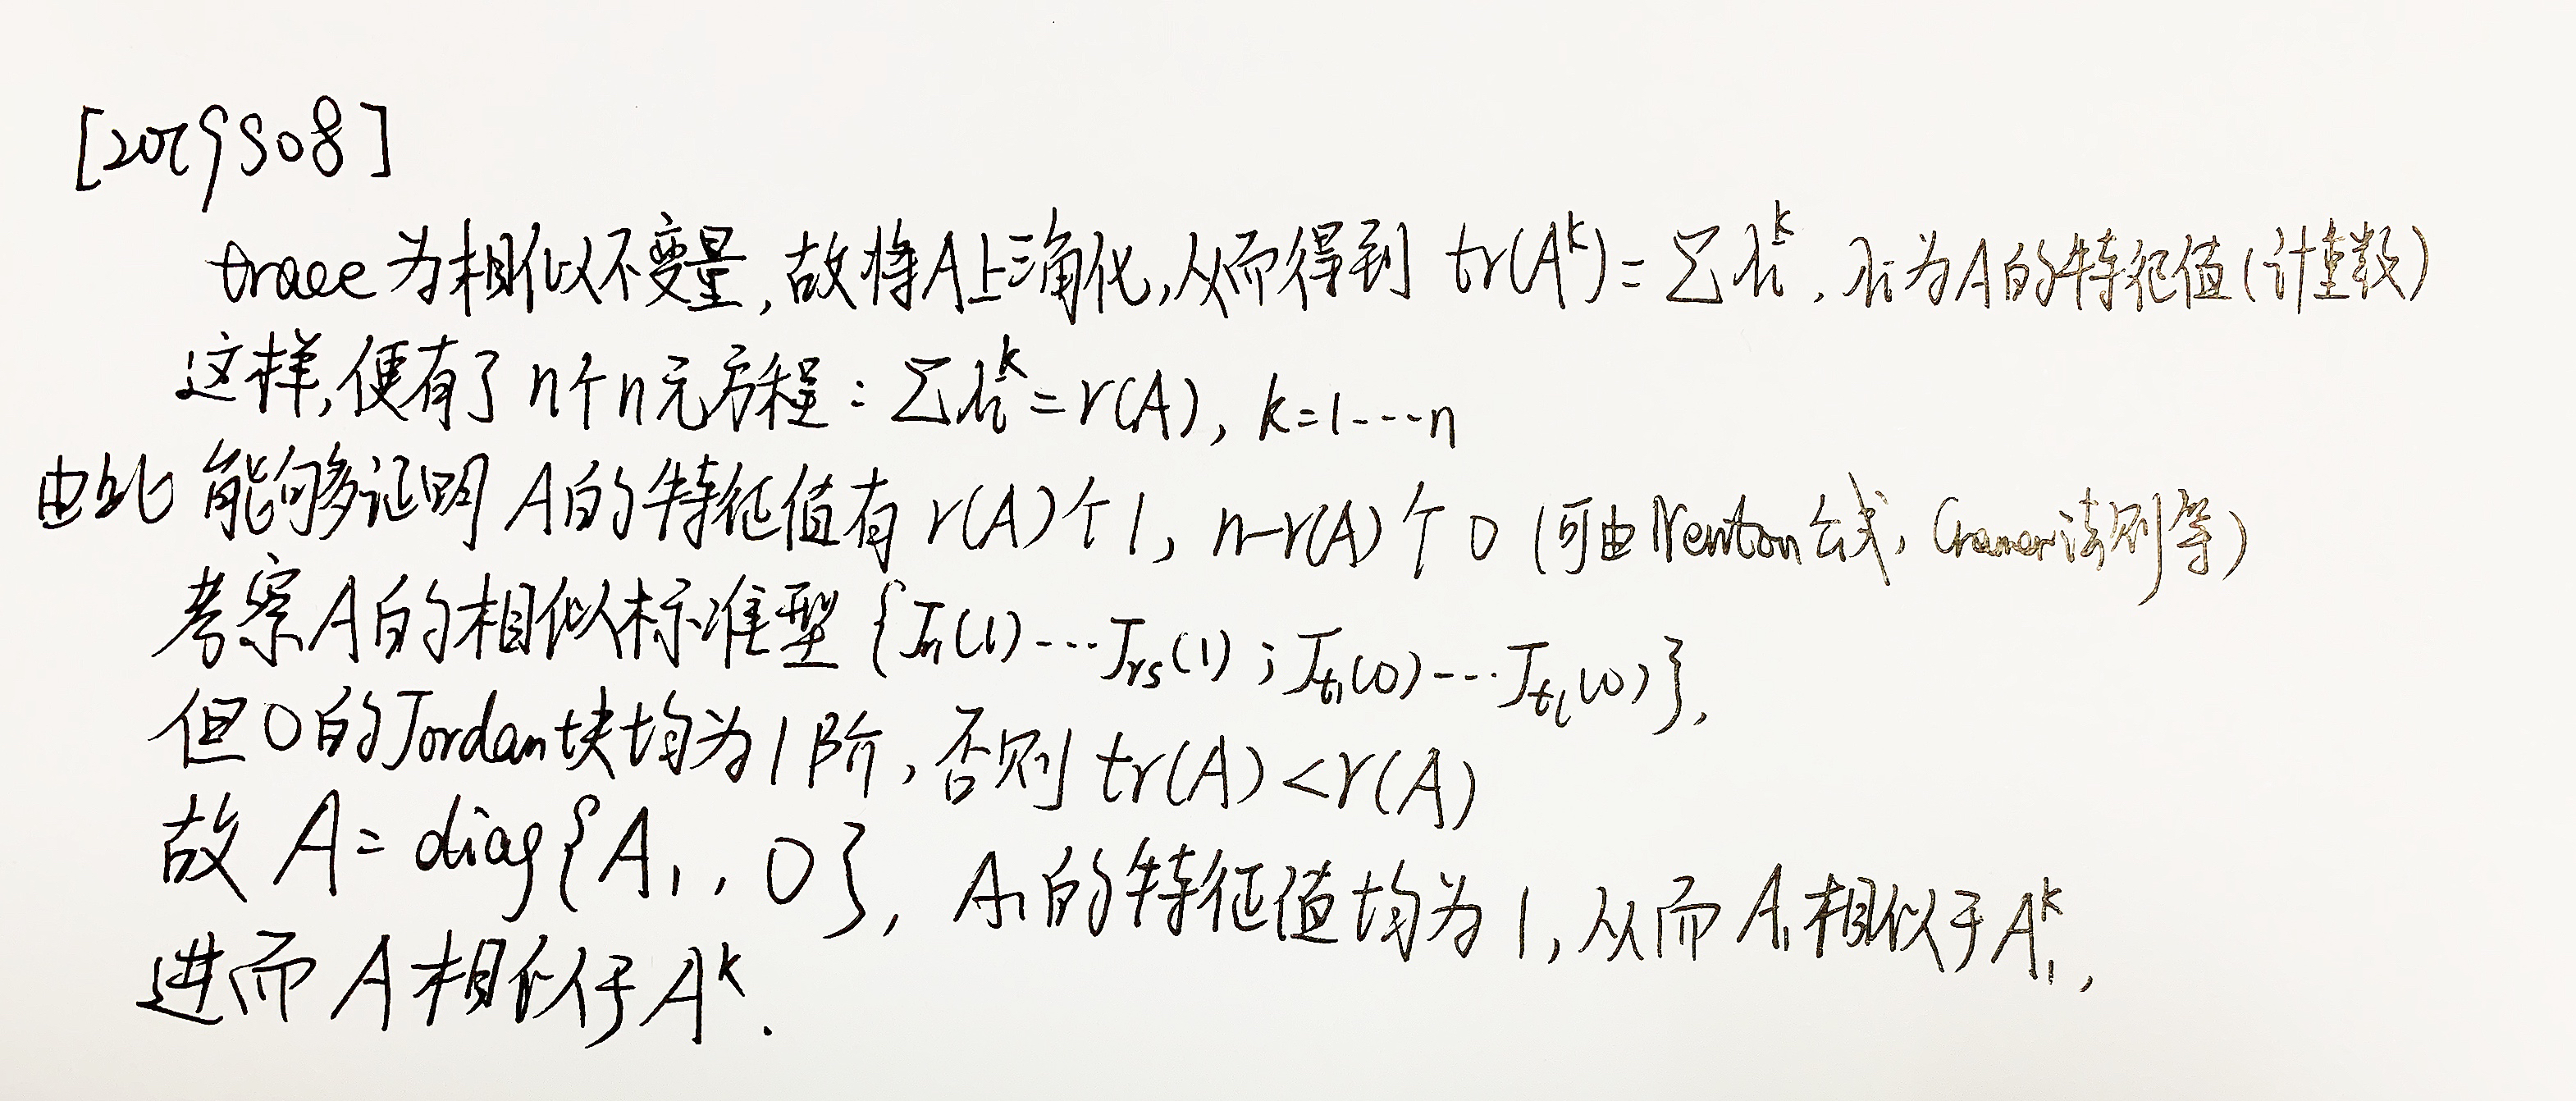 [2019S08]
trace为相似不变量,故将A上三角化,从而得到 tr(A^k)=∑λi^k, λi为A的特征值(计重数)
这样,便有了n个n元方程:∑λi^k=r(A), k=1---n
由此能够证明A的特征值有r(A)个1, n-r(A)个0 (可由Newton公式, Cramer法则等)
考察A的相似标准型{Jr1(1)---Jrs(1);Jt1(0)---Jtl(0)},
但0的Jordan块均为1阶,否则 tr(A)<r(A)
故 A=diag{A1, 0}, A1的特征值均为1,从而A1相似于A1^k,
进而A相似于A^k.